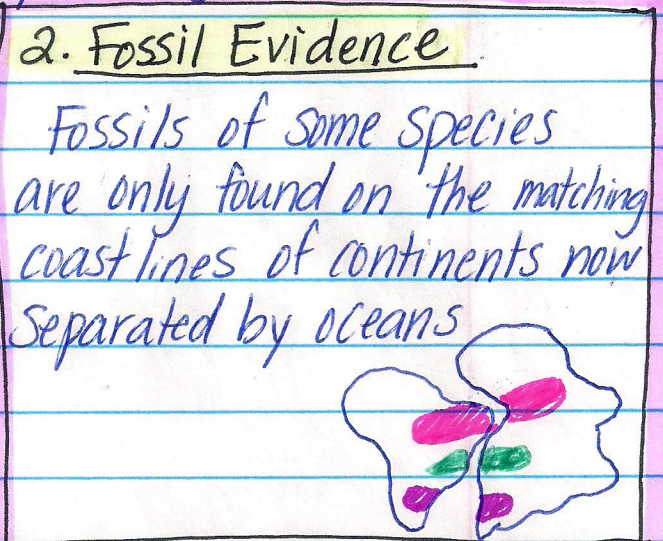 2. Fossil Evidence
Fossils of some species
are only found on the matching
coastlines of continents now
separated by oceans